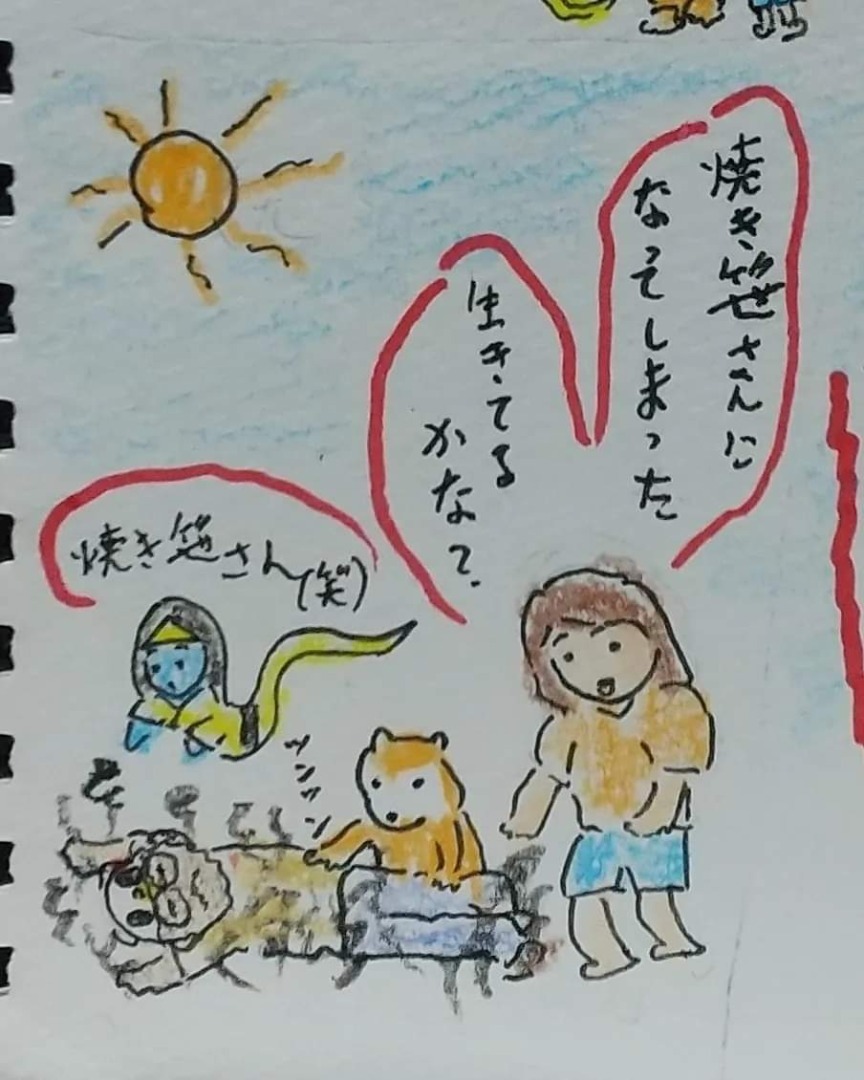 焼き笹さんに
なってしまった
生きてる
かな?
焼き笹さん(笑)
ツンツン